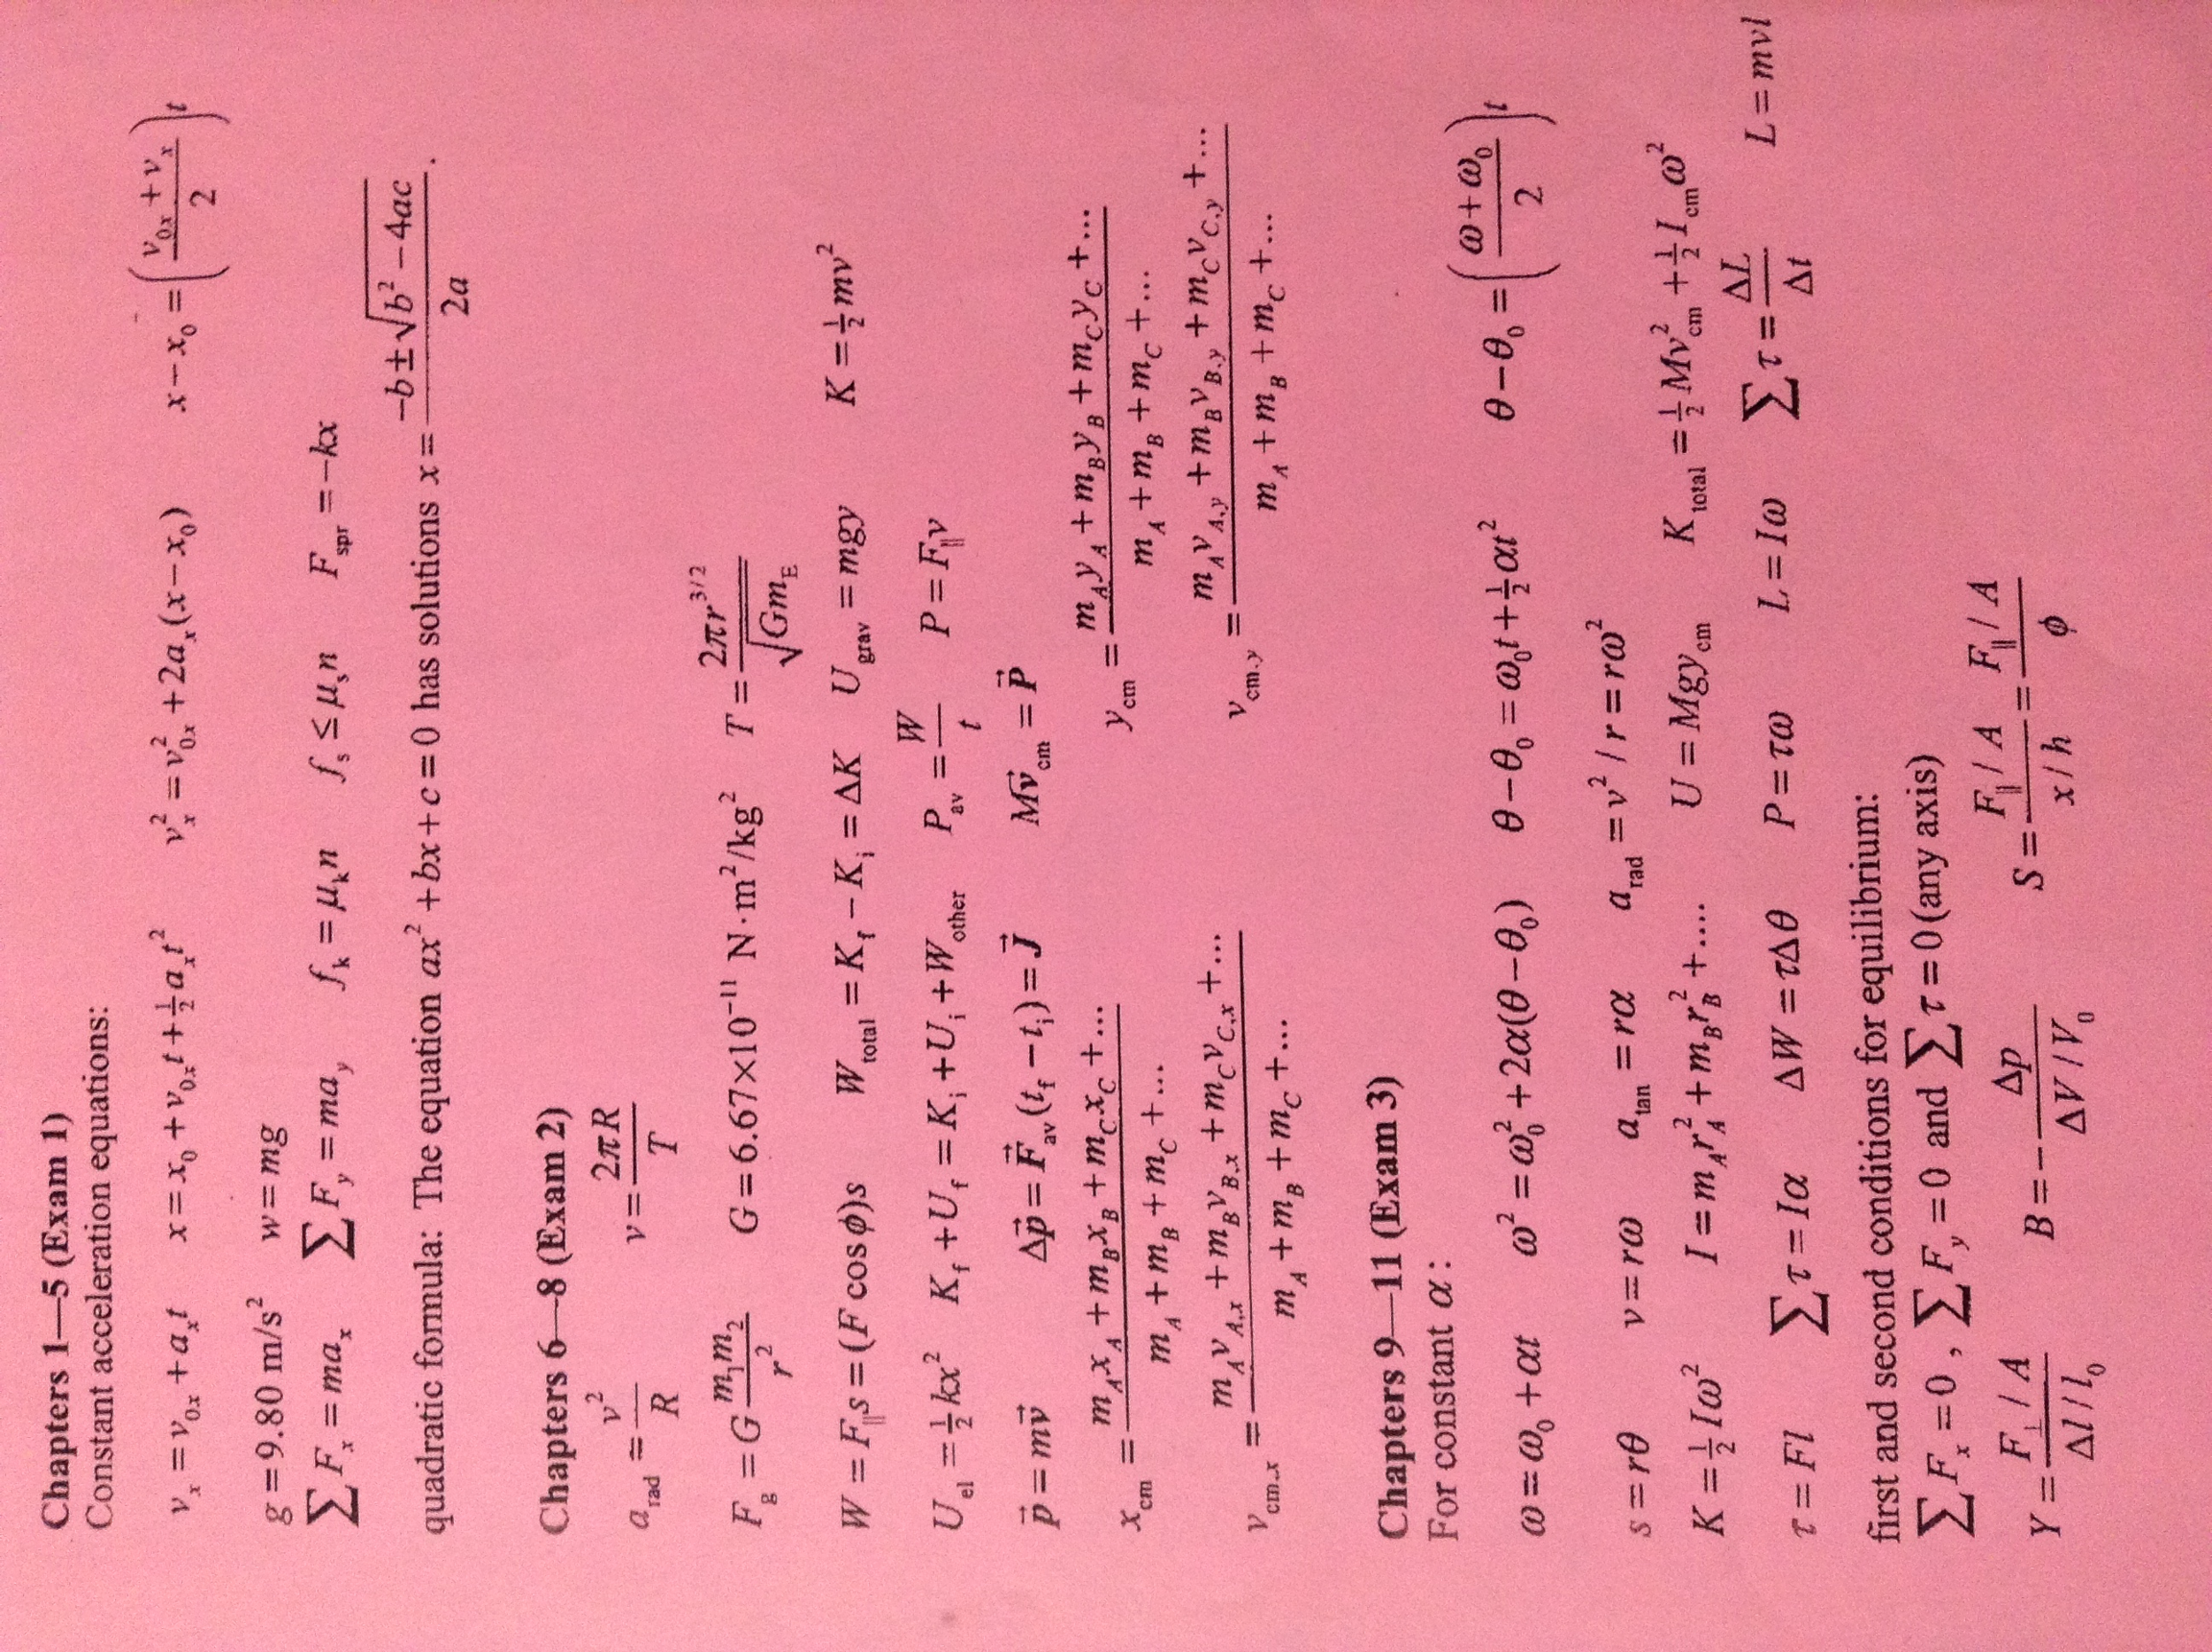 Chapters 1—5 (Exam 1)
Constant acceleration equations:
vₓ = v₀ₓ + aₓt    x = x₀ + v₀ₓt + ½aₓt²    vₓ² = v₀ₓ² + 2aₓ(x − x₀)    x − x₀ = ((v₀ₓ + vₓ)/2)t
g = 9.80 m/s²    w = mg
∑Fₓ = maₓ    ∑F_y = ma_y    f_k = μ_k n    f_s ≤ μ_s n    F_spr = −kx
quadratic formula: The equation ax² + bx + c = 0 has solutions x = (−b ± √(b² − 4ac))/(2a).
Chapters 6—8 (Exam 2)
a_rad = v²/R    v = 2πR/T
F_g = G m₁m₂/r²    G = 6.67×10⁻¹¹ N·m²/kg²    T = 2πr^(3/2)/√(Gm_E)
W = F_∥s = (F cosϕ)s    W_total = K_f − K_i = ΔK    U_grav = mgy    K = ½mv²
U_el = ½kx²    K_f + U_f = K_i + U_i + W_other    P_av = W/t    P = F_∥v
p⃗ = mv⃗    Δp⃗ = F⃗_av(t_f − t_i) = J⃗    Mv⃗_cm = P⃗
x_cm = (m_A x_A + m_B x_B + m_C x_C + ...)/(m_A + m_B + m_C + ...)    y_cm = (m_A y_A + m_B y_B + m_C y_C + ...)/(m_A + m_B + m_C + ...)
v_cm,x = (m_A v_A,x + m_B v_B,x + m_C v_C,x + ...)/(m_A + m_B + m_C + ...)    v_cm,y = (m_A v_A,y + m_B v_B,y + m_C v_C,y + ...)/(m_A + m_B + m_C + ...)
Chapters 9—11 (Exam 3)
For constant α:
ω = ω₀ + αt    ω² = ω₀² + 2α(θ − θ₀)    θ − θ₀ = ω₀t + ½αt²    θ − θ₀ = ((ω + ω₀)/2)t
s = rθ    v = rω    a_tan = rα    a_rad = v²/r = rω²
K = ½Iω²    I = m_A r_A² + m_B r_B² + ....    U = Mgy_cm    K_total = ½Mv_cm² + ½I_cm ω²
τ = Fl    ∑τ = Iα    ΔW = τΔθ    P = τω    L = Iω    ∑τ = ΔL/Δt    L = mvl
first and second conditions for equilibrium:
∑Fₓ = 0, ∑F_y = 0 and ∑τ = 0 (any axis)
Y = (F_⊥/A)/(Δl/l₀)    B = −Δp/(ΔV/V₀)    S = (F_∥/A)/(x/h) = (F_∥/A)/ϕ